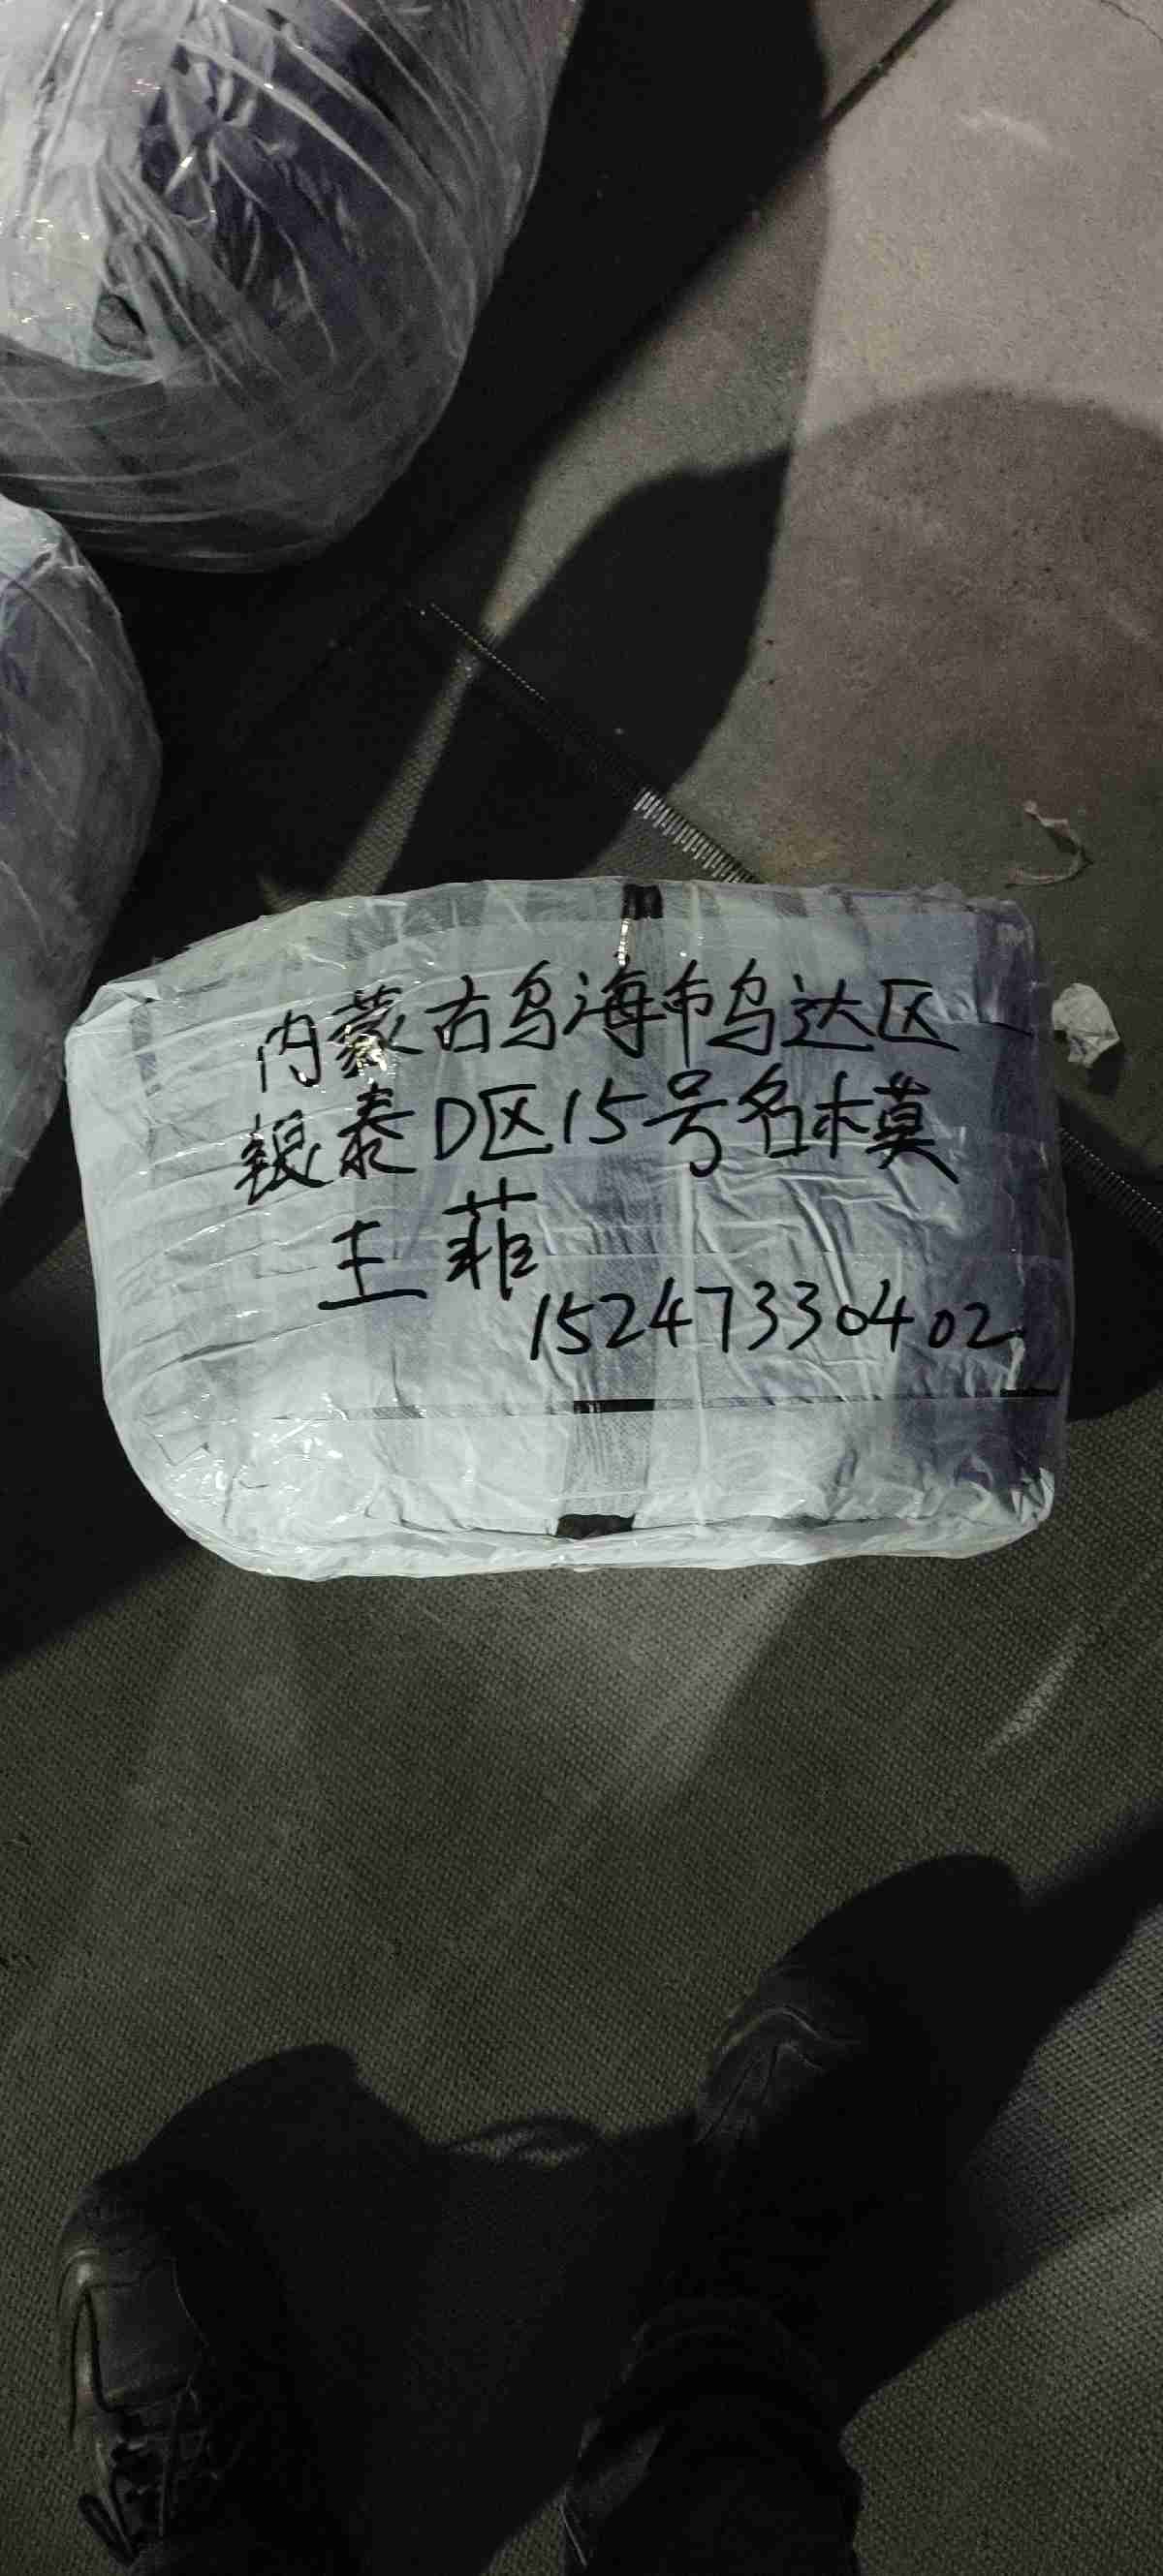 内蒙古乌海市乌达区
银泰D区15号名模
王菲
15247330402